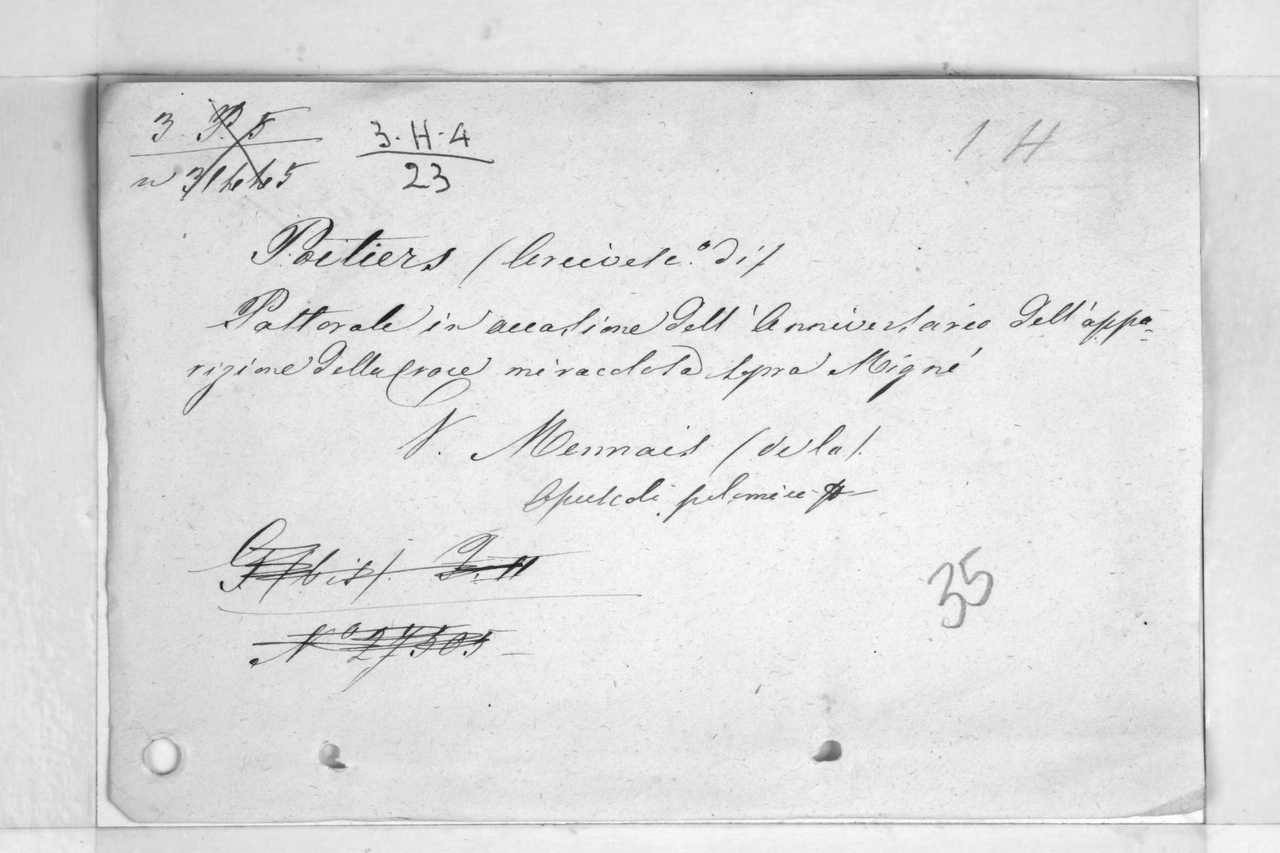 3. P. 5
3. H. 4
1. H
n 31445
23
Poitiers (Arcivesc.º di)
Pastorale in occasione dell'Anniversario dell'appa-
rizione della Croce miracolosa sopra Migné
V. Mennais (de la).
Opuscoli polemici
bis).
35
Nº 27505